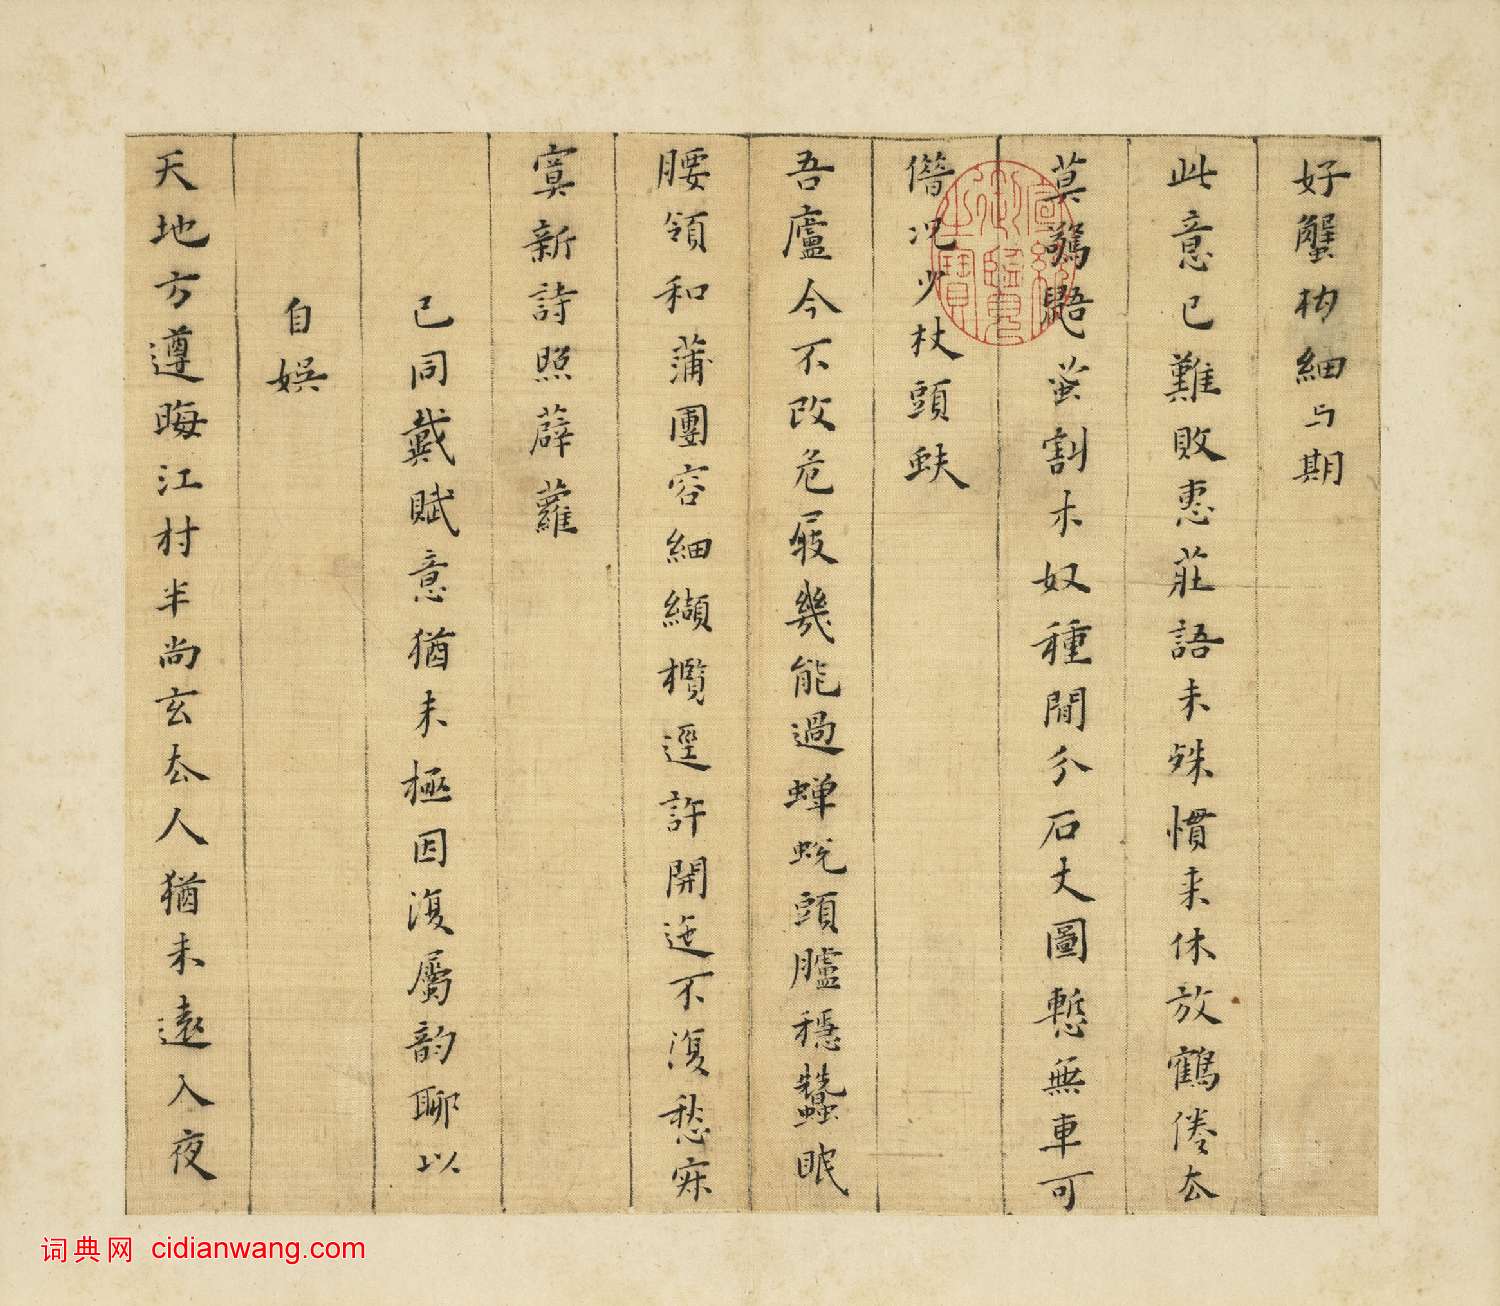 好蟹杓細與期
此意已難敗惠莊語未殊慣來休放鶴倦去
莫驚鼯茧割木奴種閒分石丈圖慙無車可
僭況少杖頭蚨
吾廬今不改危屐幾能過蟬蛻頭臚穩蠶眠
腰領和蒲團容細纈欖逕許開迤不復愁寂
寞新詩照薜蘿
已同戴賦意猶未極因復屬韵聊以
自娛
天地方遵晦江村半尚玄去人猶未遠入夜
词典网 cidianwang.com